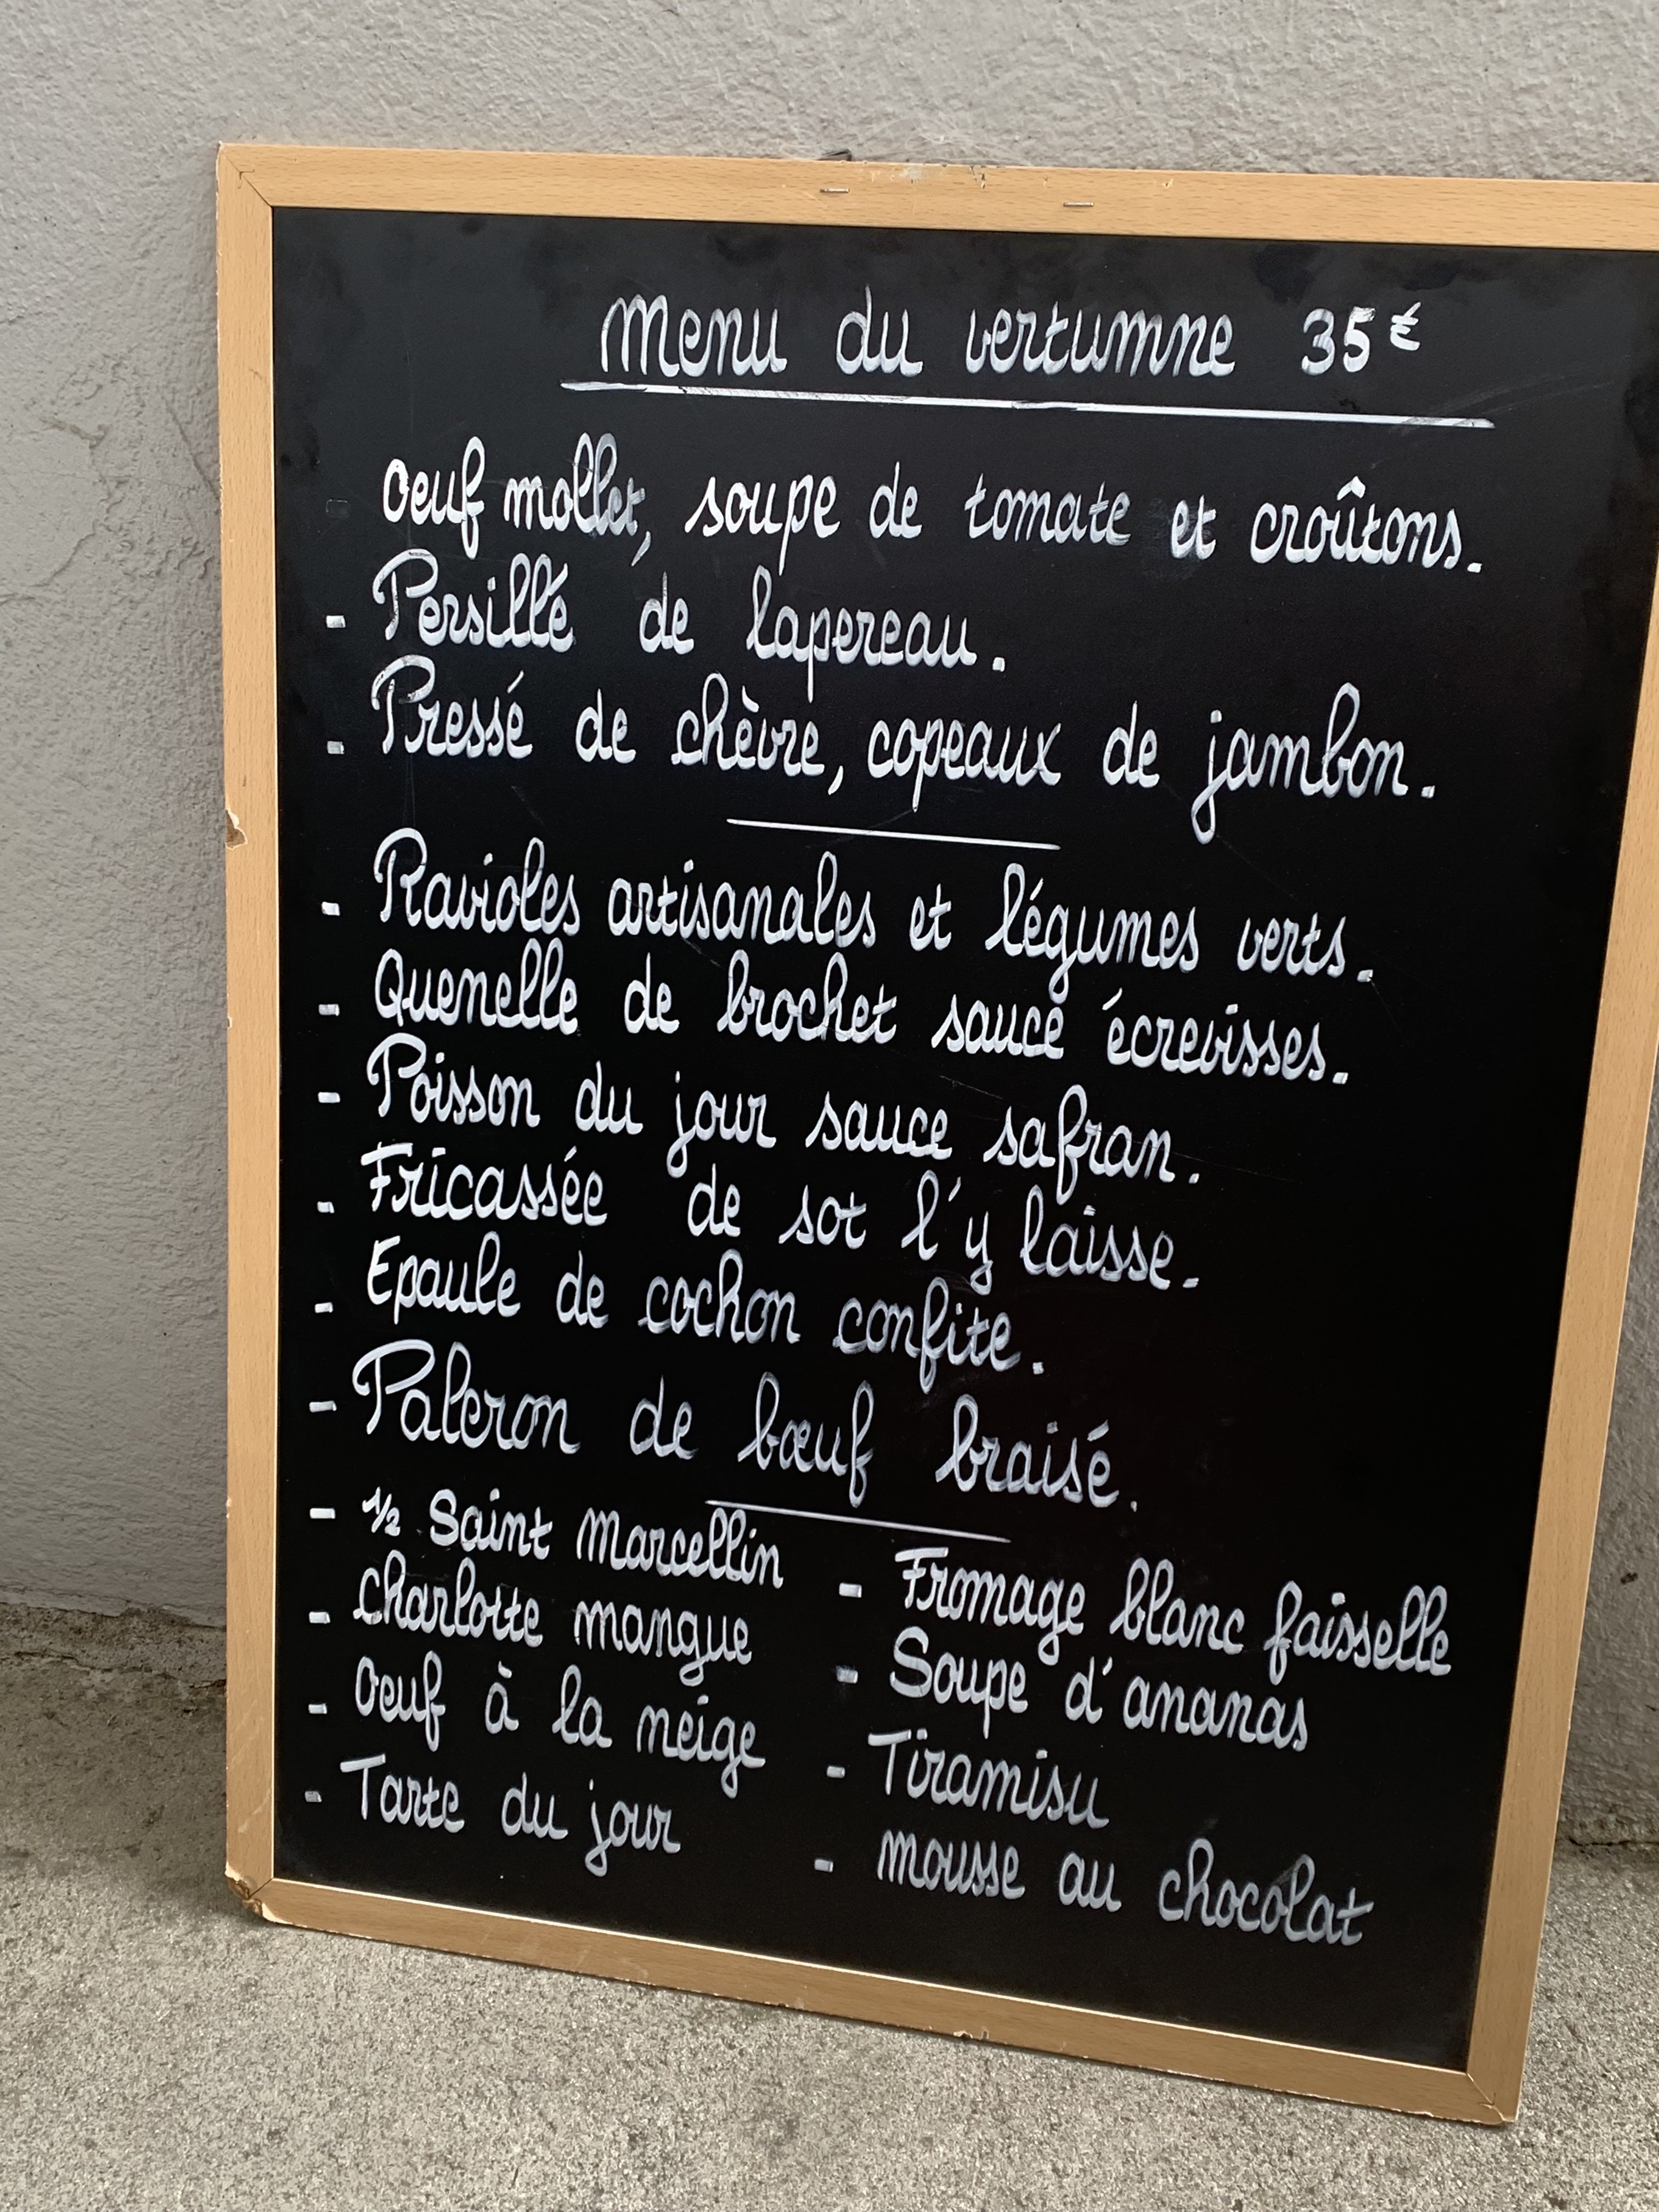 Menu du vertumne 35€
- Oeuf mollet, soupe de tomate et croûtons.
- Persillé de lapereau.
- Pressé de chèvre, copeaux de jambon.
- Ravioles artisanales et légumes verts.
- Quenelle de brochet sauce écrevisses.
- Poisson du jour sauce safran.
- Fricassée de sot l'y laisse.
- Epaule de cochon confite.
- Paleron de bœuf braisé.
- 1/2 Saint Marcellin
- Charlotte mangue
- Oeuf à la neige
- Tarte du jour
- Fromage blanc faisselle
- Soupe d'ananas
- Tiramisu
- mousse au chocolat